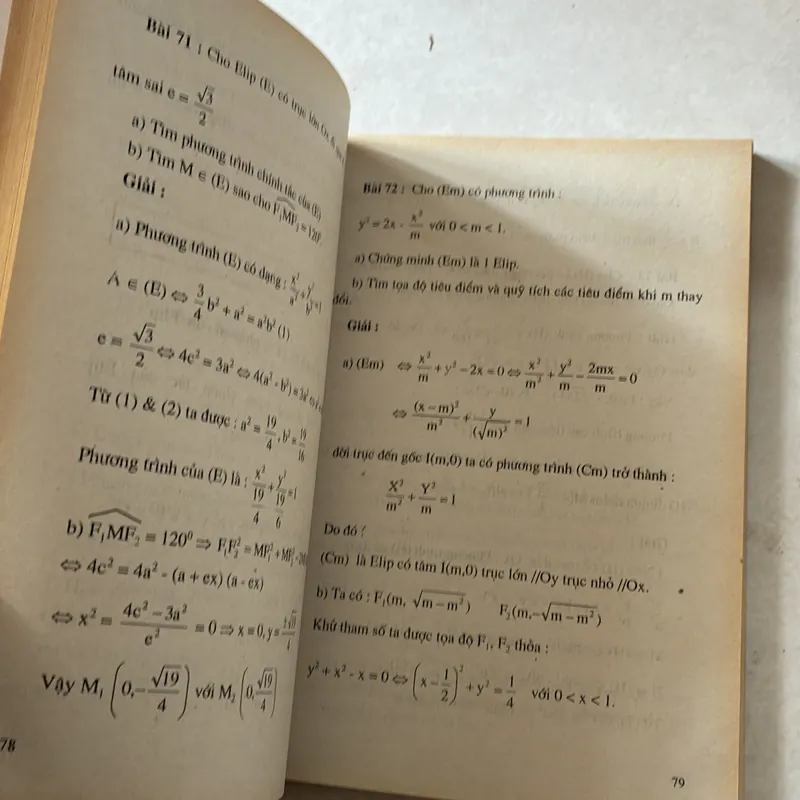 Bài 71 : Cho Elip (E) có trục lớn Ox,
tâm sai e = √3/2
a) Tìm phương trình chính tắc của (E)
b) Tìm M ∈ (E) sao cho F₁MF₂ = 120⁰
Giải :
a) Phương trình (E) có dạng : x²/a² + y²/b² = 1
A ∈ (E) ⇔ 3/4 b² + a² = a²b² (1)
e = √3/2 ⇔ 4c² = 3a² ⇔ 4(a² - b²) = 3a² ⇔
Từ (1) & (2) ta được : a² = 19/4 , b² = 19/16
Phương trình của (E) là : x²/(19/4) + y²/(19/6) = 1
b) F₁MF₂ = 120⁰ ⇒ F₁F₂² = MF₁² + MF₂² -
⇔ 4c² = 4a² - (a + ex) (a - ex)
⇔ x² = (4c² − 3a²)/e² = 0 ⇒ x = 0, y = ±√19/4
Vậy M₁ (0,−√19/4) với M₂ (0,√19/4)
78
Bài 72 : Cho (Em) có phương trình :
y² = 2x - x²/m với 0 < m < 1.
a) Chứng minh (Em) là 1 Elip.
b) Tìm tọa độ tiêu điểm và quỹ tích các tiêu điểm khi m thay
đổi.
Giải :
a) (Em) ⇔ x²/m + y² − 2x = 0 ⇔ x²/m² + y²/m − 2mx/m = 0
⇔ (x − m)²/m² + y/(√m)² = 1
dời trục đến gốc I(m,0) ta có phương trình (Cm) trở thành :
X²/m² + Y²/m = 1
Do đó :
(Cm) là Elip có tâm I(m,0) trục lớn //Oy trục nhỏ //Ox.
b) Ta có : F₁(m, √m − m²) F₂(m,−√m − m²)
Khử tham số ta được tọa độ F₁, F₂ thỏa :
y² + x² - x = 0 ⇔ (x − 1/2)² + y² = 1/4 với 0 < x < 1.
79